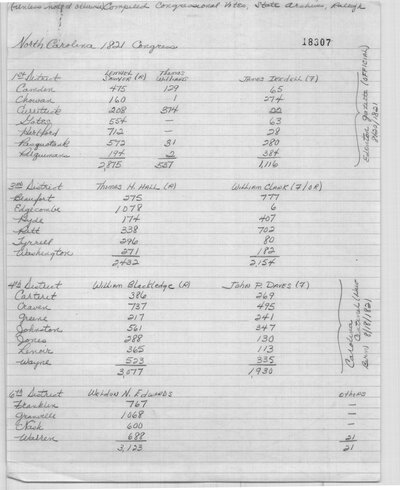 (unless noted otherwise) Compiled Congressional Votes, State Archives, Raleigh
North Carolina 1821 Congress
18307
1st District Lemuel Sawyer (R) Thomas Williams James Iredell (F)
Camden 475 129 65
Chowan 160 1 274
Currituck 208 374
Gates 554 — 63
Hertford 712 — 28
Pasquotank 572 31 280
Perquimans 194 2 384
2,875 537 1,116
Edenton Gazette (OFFICIAL) 8/20/1821
3rd District Thomas H. Hall (R) William Clark (F/OR)
Beaufort 275 777
Edgecombe 1078 6
Hyde 174 407
Pitt 338 702
Tyrrell 296 80
Washington 271 182
2,432 2,154
4th District William Blackledge (R) John P. Daves (F)
Carteret 386 269
Craven 737 495
Greene 217 241
Johnston 561 347
Jones 288 130
Lenoir 365 113
Wayne 523 335
3,077 1,930
Carolina Centinel/New Bern 8/18/1821
6th District Weldon N. Edwards Others
Franklin 767 —
Granville 1068 —
Nash 600 —
Warren 688 21
3,123 21